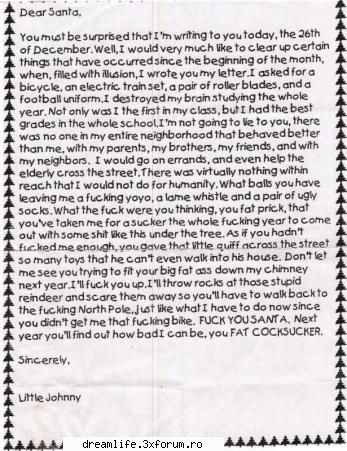 Dear Santa,
You must be surprised that I'm writing to you today, the 26th
of December. Well, I would very much like to clear up certain
things that have occurred since the beginning of the month,
when, filled with illusion, I wrote you my letter. I asked for a
bicycle, an electric train set, a pair of roller blades, and a
football uniform. I destroyed my brain studying the whole
year. Not only was I the first in my class, but I had the best
grades in the whole school. I'm not going to lie to you, there
was no one in my entire neighborhood that behaved better
than me, with my parents, my brothers, my friends, and with
my neighbors. I would go on errands, and even help the
elderly cross the street. There was virtually nothing within
reach that I would not do for humanity. What balls you have
leaving me a fucking yoyo, a lame whistle and a pair of ugly
socks. What the fuck were you thinking, you fat prick, that
you've taken me for a sucker the whole fucking year to come
out with some shit like this under the tree. As if you hadn't
fucked me enough, you gave that little quiff across the street
so many toys that he can't even walk into his house. Don't let
me see you trying to fit your big fat ass down my chimney
next year. I'll fuck you up. I'll throw rocks at those stupid
reindeer and scare them away so you'll have to walk back to
the fucking North Pole, just like what I have to do now since
you didn't get me that fucking bike. FUCK YOU SANTA. Next
year you'll find out how bad I can be, you FAT COCKSUCKER.
Sincerely,
Little Johnny
dreamlife.3xforum.ro